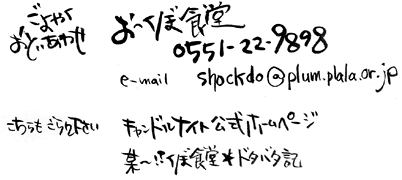 ごよやく
おといあわせ
お〜くぼ食堂
0551-22-9898
e-mail shockdo@plum.plala.or.jp
こちらもごらん下さい キャンドルナイト公式ホームページ
菜〜!!くぼ食堂*ドタバタ記